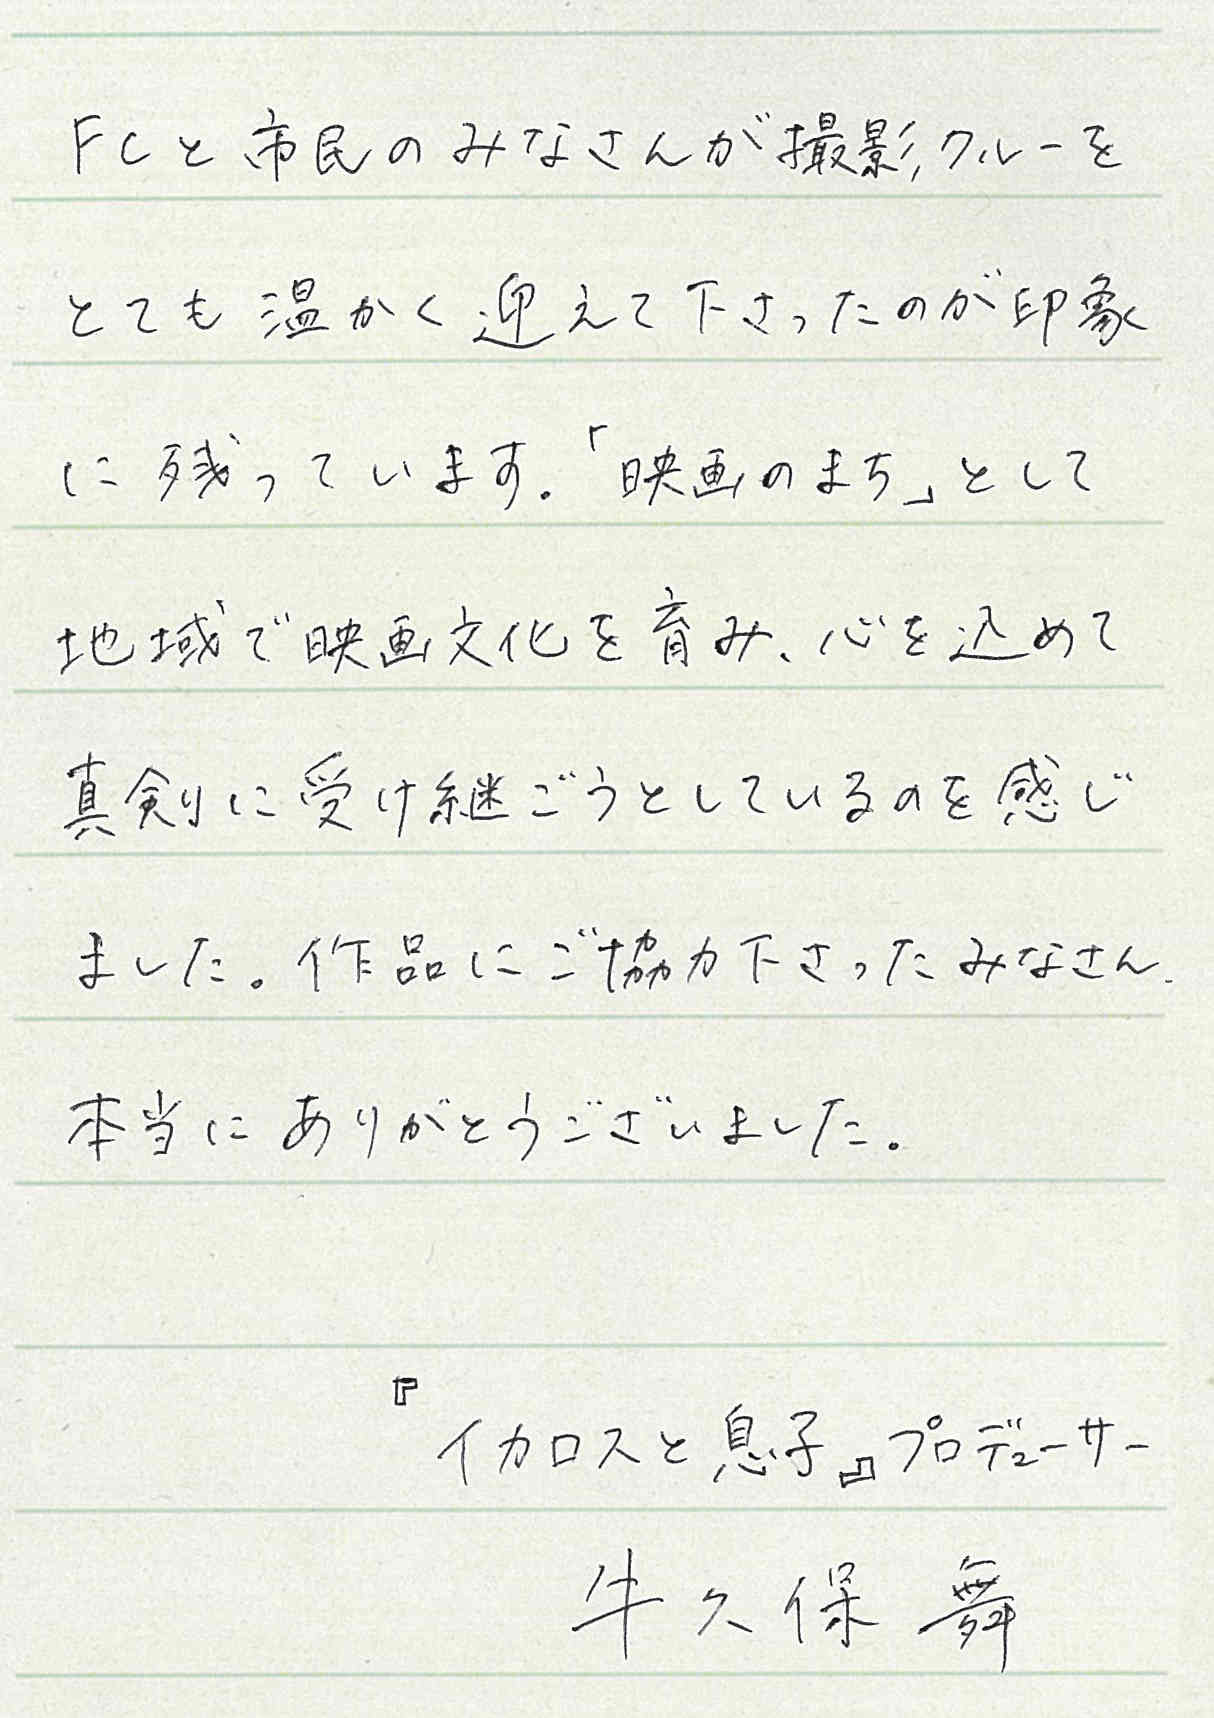 FCと市民のみなさんが撮影クルーを
とても温かく迎えて下さったのが印象
に残っています。「映画のまち」として
地域で映画文化を育み、心を込めて
真剣に受け継ごうとしているのを感じ
ました。作品にご協力下さったみなさん、
本当にありがとうございました。
『イカロスと息子』プロデューサー
牛久保 舞